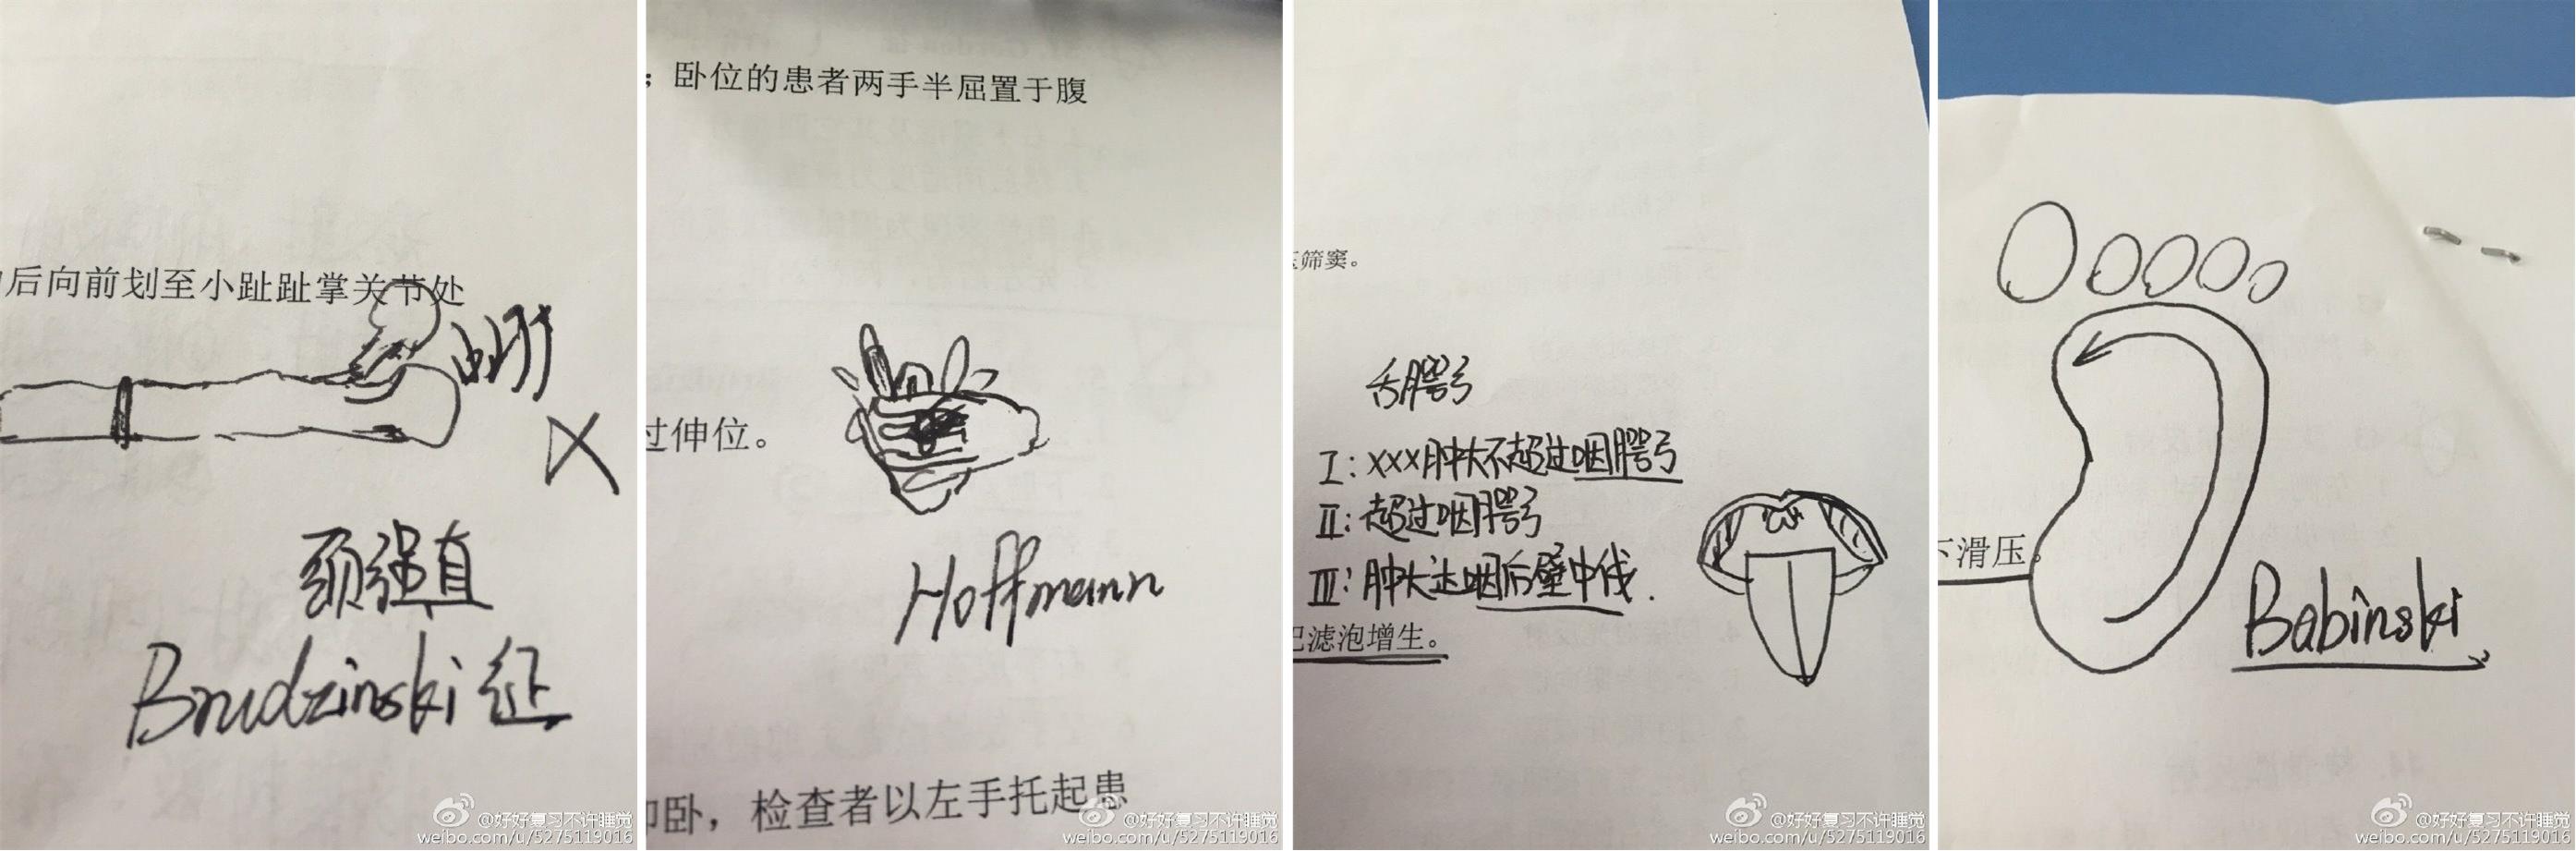 后向前划至小趾趾掌关节处
颈强直
Brudzinski 征
@好好复习不许睡觉
weibo.com/u/5275119016
；卧位的患者两手半屈置于腹
过伸位。
Hoffmann
卧，检查者以左手托起患
@好好复习不许睡觉
weibo.com/u/5275119016
筛窦。
舌腭弓
I：XXX肿大不超过咽腭弓
II：超过咽腭弓
III：肿大达咽后壁中线.
滤泡增生。
@好好复习不许睡觉
weibo.com/u/5275119016
下滑压。
Babinski
@好好复习不许睡觉
weibo.com/u/5275119016